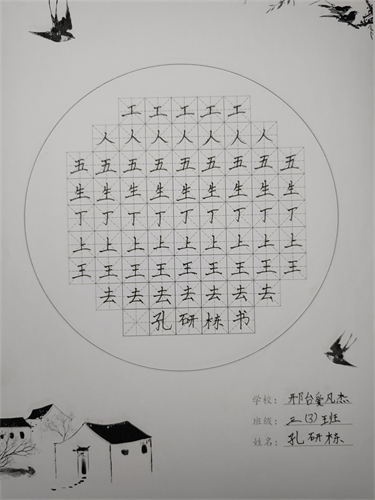 工工工工工
人人人人人人人
五五五五五五五五五
生生生生生生生生生
丁丁丁丁丁丁丁丁丁
上上上上上上上上上
王王王王王王王王王
去去去去去去去
孔研栋书
学校：邢台凡杰
班级：二(3)班
姓名：孔研栋